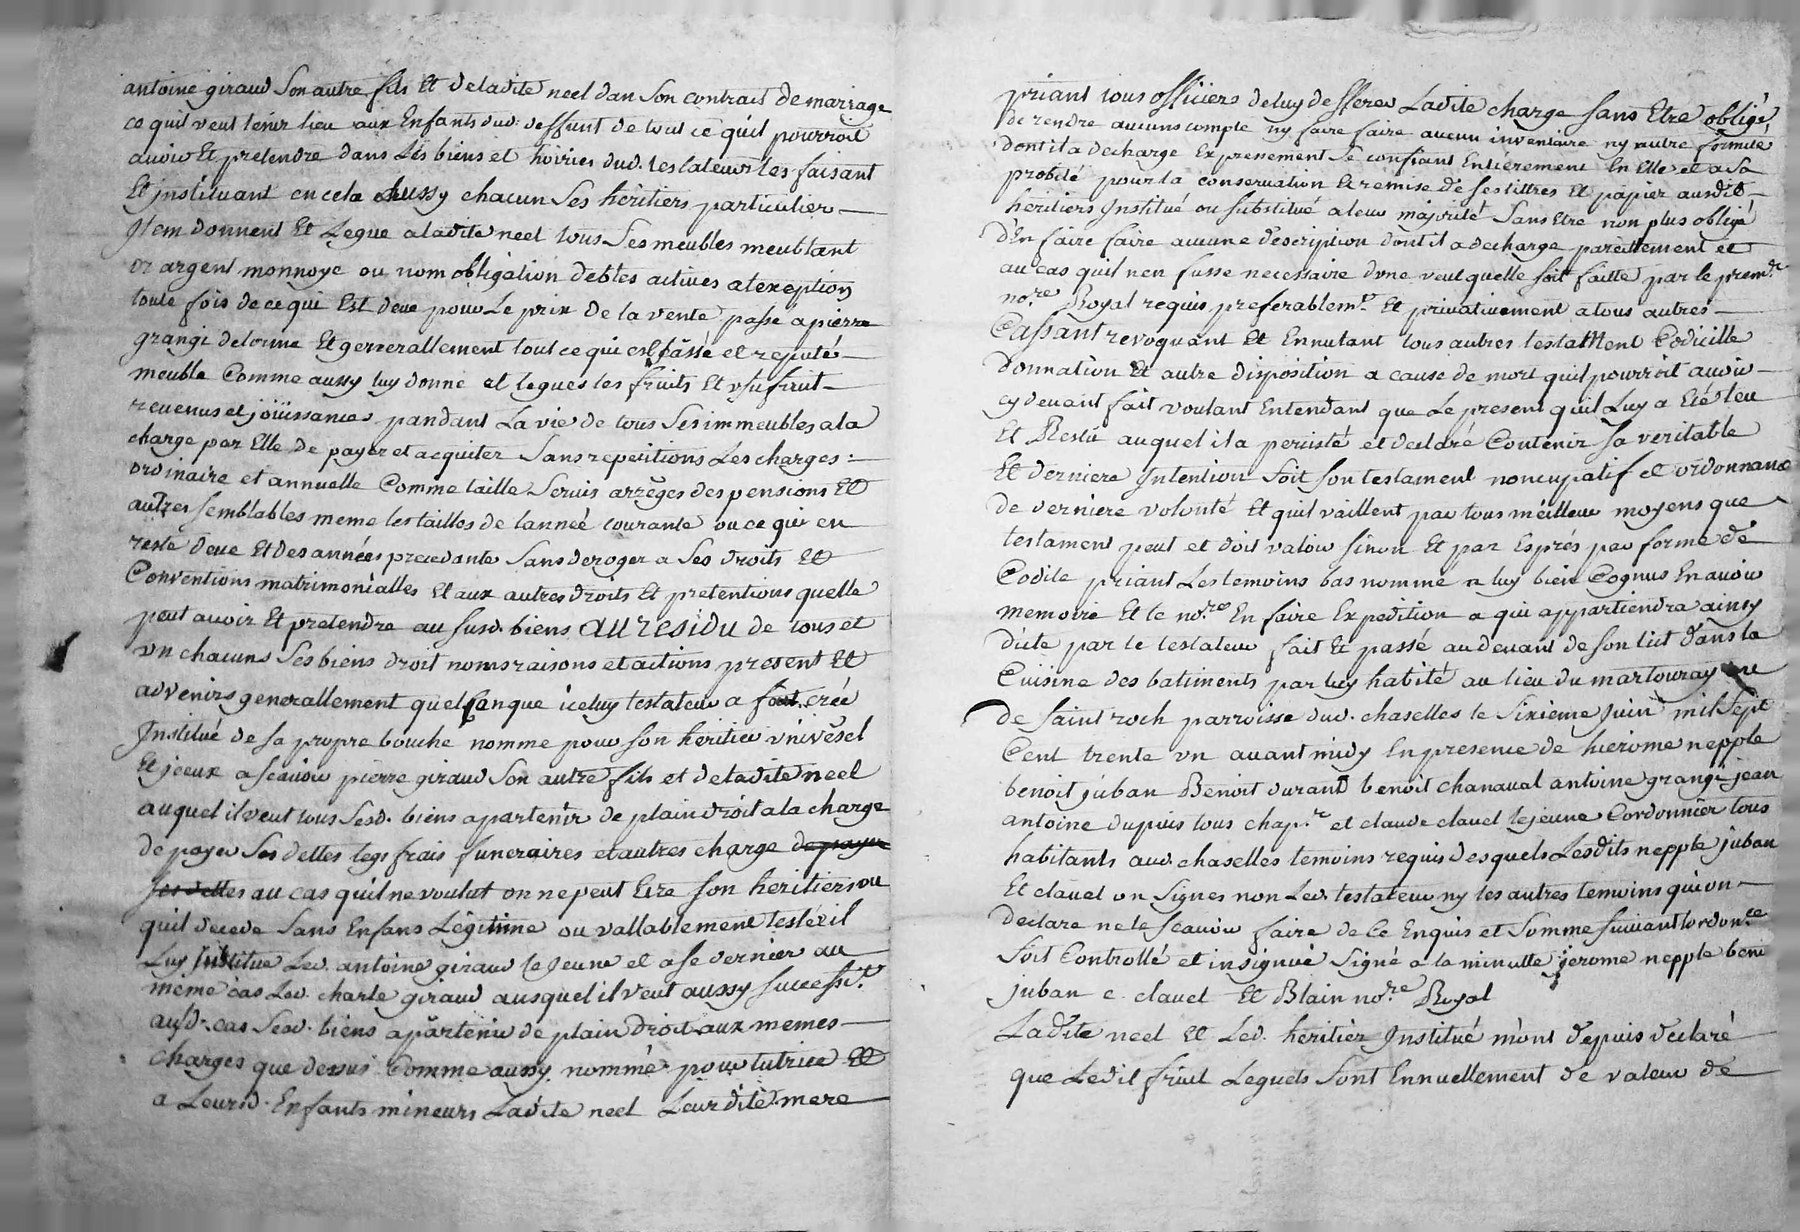 antoine giraud Son autre fils Et deladite neel dan Son contrait de mariage
ce quil veut tenir lieu aux Enfants dud. deffunt de tout ce quil pourroit
avoir Et pretendre dans Les biens et hoiries dud. testateur les faisant
Et jnstituant en cela aussy chacun Ses hèritiers particulier
Jtem donnent Et Legue aladite neel tous Ses meubles meublant
or argent monnoye ou nom obligation debtes actives atexeption
toute fois de ce qui Est deue pour Le prix de la vente passe a pierre
grangi delorme Et generallement tout ce qui est passè et reputé
meuble Comme aussy luy donne et legues les fruits Et usufruit
revenus et joüissances pandant La vie de tous Ses immeubles ala
charge par Elle de payer et acquiter Sans repetitions Les charges
ordinaire et annuelle Comme taille Servis arrèges des pensions Et
autres semblables meme les tailles de lanneé courante ou ce qui en
reste deue Et des années precedante Sans deroger a Ses droits Et
Conventions matrimonialles Et aux autres droits Et pretentions quelle
peut avoir Et pretendre au susd. biens au residu de tous et
vn chacuns Ses biens droit noms raisons et actions present Et
advenirs generallement quelconque iceluy testateur a fait creé
Jnstitué de sa propre bouche nomme pour son hèritier vnivèsel
Et jceux a scavoir pierre giraud Son autre fils et deladite neel
auquel il veut tous Sesd. biens apartenir de plain droit ala charge
de payer Ses dettes legs frais funeraires et autres charge de payer
Ses dettes au cas quil ne voulut on ne peut Etre Son hèritiers ou
quil decede Sans Enfans Légitime ou vallablement testé il
Luy Jnstitue Led. antoine giraud le Jeune et a se dernier au
meme cas Led. charle giraud ausquel il veut aussy successt.
ausd. cas Sesd. biens apartenir de plain droit aux memes
charges que dessus Comme aussy nommé pour tutrice Et
a Leursd. Enfants mineurs Ladite neel Leur dite mere
priant tous officiers deluy defferer Ladite charge Sans Etre obligé
de rendre aucuns compte ny faire faire aucun inventaire ny autre formule
dont il a decharge Expressement Se confiant Entierement En Elle et a Sa
probité pour la conservation Et remise de ses tittres Et papier ausdits
hèritiers Jnstitué ou substitué a leur majorité Sans Etre non plus obligé
dEn faire faire aucune description dont il a decharge pareillement et
au cas quil nen fusse necessaire dune veut quelle soit faitte par le premr.
nore. Royal requis preferablemt. Et privativement a tous autres
Cassant revoquant Et Ennulant tous autres testament Codicille
Donnation Et autre disposition a cause de mort quil pourroit avoir
cy devant fait voulant Entendant que Le present quil Luy a Eté leu
Et Releu auquel il a percisté et declaré Contenir Sa veritable
Et derniere Jntention Soit Son testament noncupatif et ordonnance
de derniere volonté Et quil vaillent par tous meilleur moyens que
testament peut et doit valoir sinon Et par Esprés par forme de
Codile priant Les temoins bas nommé a luy bien Cognus En avoir
memoire Et le nore. En faire Expedition a qui appartiendra ainsy
dicte par le testateur fait Et passé au devant de Son lict dans la
Cuisine des batiments par luy habité au lieu du martouray rue
de saint roch parroisse dud. chaselles le Sixieme Juin mil Sept
Cent trente vn avant midy En presence de hierome nepple
benoit juban Benoit durand benoit chanaval antoine grangi jean
antoine dupuis tous chapr. et claude clauel lejeune Cordonnier tous
habitants aud. chaselles temoins requis desquels Lesdits nepple juban
Et clauel on Signes non Led. testateur ny les autres temoins qui on
declare ne le scavoir faire de Ce Enquis et Somme suivant lordonce
soit Controllé et insignué Signé a la minutte jerome nepple benᵗ
juban c. clauel Et Blain nore. Royal
Ladite neel Et Led. hèritier Jnstitué mònt depuis declaré
que Ledit fruit Leguets Sont Ennuellement de valeur de